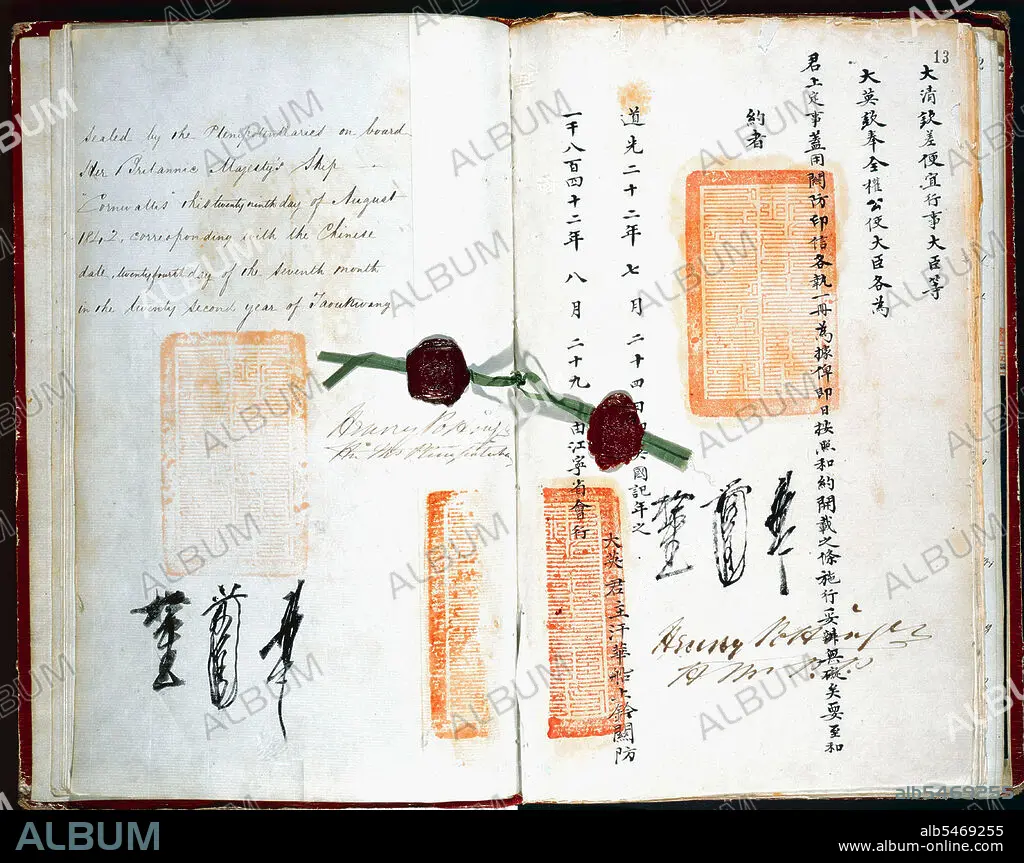 Sealed by the Plenipotentiaries on board
Her Britannic Majesty's Ship
Cornwallis this twenty ninth day of August
1842, corresponding with the Chinese
date, twenty fourth day of the seventh month
in the twenty second year of Taoukwang
Henry Pottinger
13
大清欽差便宜行事大臣等
大英欽奉全權公使大臣各為
君上定事蓋用關防印信各執一冊為據俾即日按照和約開載之條施行妥辦無礙矣要至和
約者
道光二十二年七月二十四日即英國記年之
一千八百四十二年八月二十九日由江寧省會行
大英君主汗華船上鈐關防
Henry Pottinger
ALBUM
alb5469255
ALBUM
alb5469255
www.album-online.com